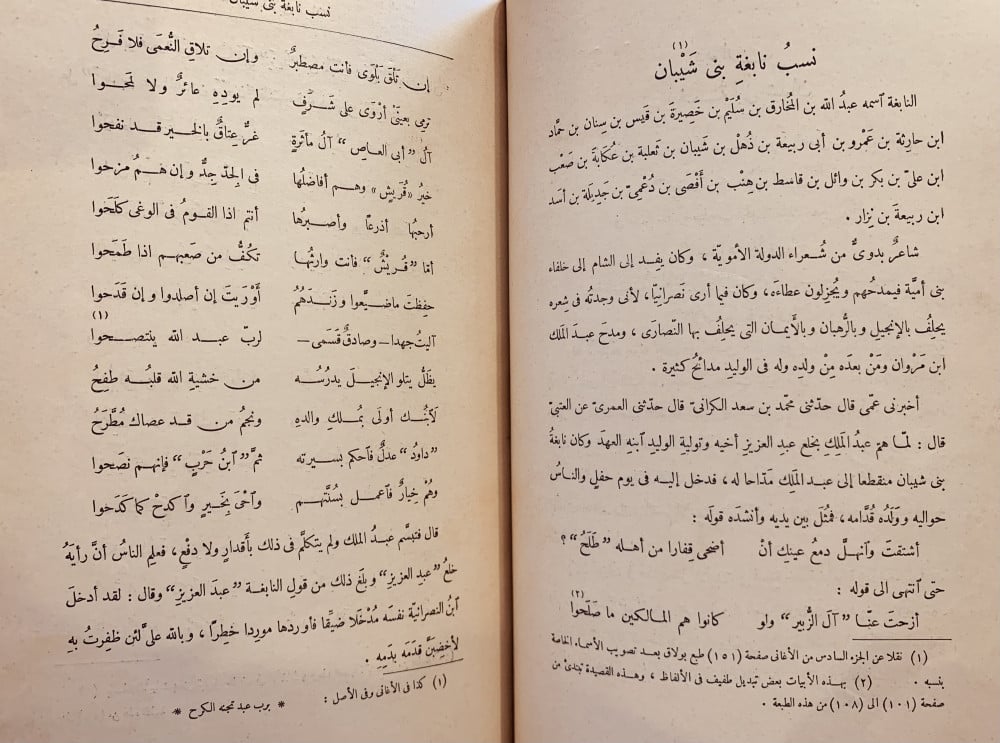 نسبُ نابغةِ بنى شَيْبان (١)
النابغة اسمه عبدُ الله بن المُخارق بن سُلَيْم بن خَصِيرَةَ بن قَيس بن سِنان بن حمّاد
ابن حارثة بن عَمْرو بن أبى ربيعة بن ذُهْل بن شَيبان بن ثعلبة بن عُكَابَة بن صَعْب
ابن علىّ بن بكر بن وائل بن قاسط بن هِنْب بن أَفْصَى بن دُعْمِىّ بن جَدِيلَة بن أسَد
ابن ربيعَةَ بن نِزار .
شاعرٌ بدوىٌّ من شُعراء الدولة الأمويّة ، وكان يفِد إلى الشام إلى خلفاء
بنى أميَّة فيمدحُهم ويُجزلون عطاءَه، وكان فيما أرى نَصرانيّا، لأنى وجدتُه فى شِعره
يحلِفُ بالإنجيل وبالرُّهبان وبالأيمان التى يحلِفُ بها النَّصارَى ، ومدحَ عبدَ المَلك
ابن مَرْوان ومَنْ بعدَه مِنْ ولده وله فى الوليدِ مدائحُ كثيرة .
أخبرنى عمّى قال حدّثنى محمّد بن سعد الكرانىّ قال حدّثنى العمرىّ عن العتبىّ
قال : لمّا همّ عبدُ المَلِك بخلع عبدِ العزيز أخيه وتولية الوليدِ ابنِه العهدَ وكان نابغةُ
بنى شيبان منقطعا إلى عبد المَلك مَدّاحا له ، فدخل إليه فى يوم حفلٍ والناسُ
حواليه ووَلَدُه قُدَّامه، فمَثُلَ بين يديه وأنشدَه قولَه :
أشتقتَ وانهلَّ دمعُ عينك أنْ أضحى قِفارا من أهله ”طَلَحُ“ ؟
حتى انتهى الى قوله :
أزحتَ عنّا ”آلَ الزُّبير“ ولو كانوا هم المالكين ما صَلَحُوا (٢)
(١) نقلا عن الجزء السادس من الأغانى صفحة (١٥١) طبع بولاق بعد تصويب الأسماء الخاصة
بنسبه . (٢) بهذه الأبيات بعض تبديل طفيف فى الألفاظ ، وهذه القصيدة تبتدئ من
صفحة (١٠١) الى (١٠٨) من هذه الطبعة .
نسب نابغة بنى شيبان
إن تَلْقَ بَلْوَى فأنت مصطبرٌ وإن تلاقِ النُّعمَى فلا فَرِحُ
ترمى بعينَىْ أَرْوَى على شَرَفٍ لم يوذِهِ عائرٌ ولا لَمحوا
آلُ ”أبى العاص“ آلُ مأثرةٍ غرٌّ عِتاقٌ بالخير قد نفحوا
خيرُ ”قُرَيشٍ“ وهم أفاضلُها فى الجِدّ جِدٌّ وإن هُمُ مزحوا
أرحبُها أذرعًا وأصبرُها أنتم اذا القومُ فى الوغى كلَحوا
أمّا ”قُرَيشٌ“ فأنت وارثُها تكُفُّ من صَعبهم اذا طَمَحوا
حفِظتَ ماضيَّعوا وزَندَهُمُ أوْرَيتَ إن أصلدوا وإن قدَحوا
آليتُ جهدا ــ وصادقٌ قسَمى ــ لربّ عبد الله ينتصحوا (١)
يظَلُّ يتلو الإنجيلَ يدرُسُه من خشيةِ الله قلبُه طفِحُ
لَابْنُك أولَى بمُلكِ والدهِ ونجمُ من قد عصاك مُطَّرَحُ
”داودُ“ عدلٌ فاحكم بسيرته ثمَّ ”ابنُ حَرْبٍ“ فإنهم نصَحوا
وهُمْ خِيارٌ فاعمل بسُنَّتهم واحْىَ بخيرٍ واكدحْ كما كدَحوا
قال فتبسَّم عبدُ الملك ولم يتكلَّم فى ذلك بأقدارٍ ولا دفْعٍ، فعلم الناسُ أنَّ رأيَهُ
خلعُ ”عبدِ العزيز“ وبلغ ذلك من قولِ النابغة ”عبدَ العزيزِ“ وقال : لقد أدخلَ
ابنُ النصرانيّة نفسَه مُدْخَلًا ضيقًا فأوردها موردا خطِرًا ، وبالله علىَّ لئن ظفِرتُ بهِ
لأخضِبَنَّ قدَمَه بدمِه .
(١) كذا فى الأغانى وفى الأصل :
* برب عبد تجنه الكرح *